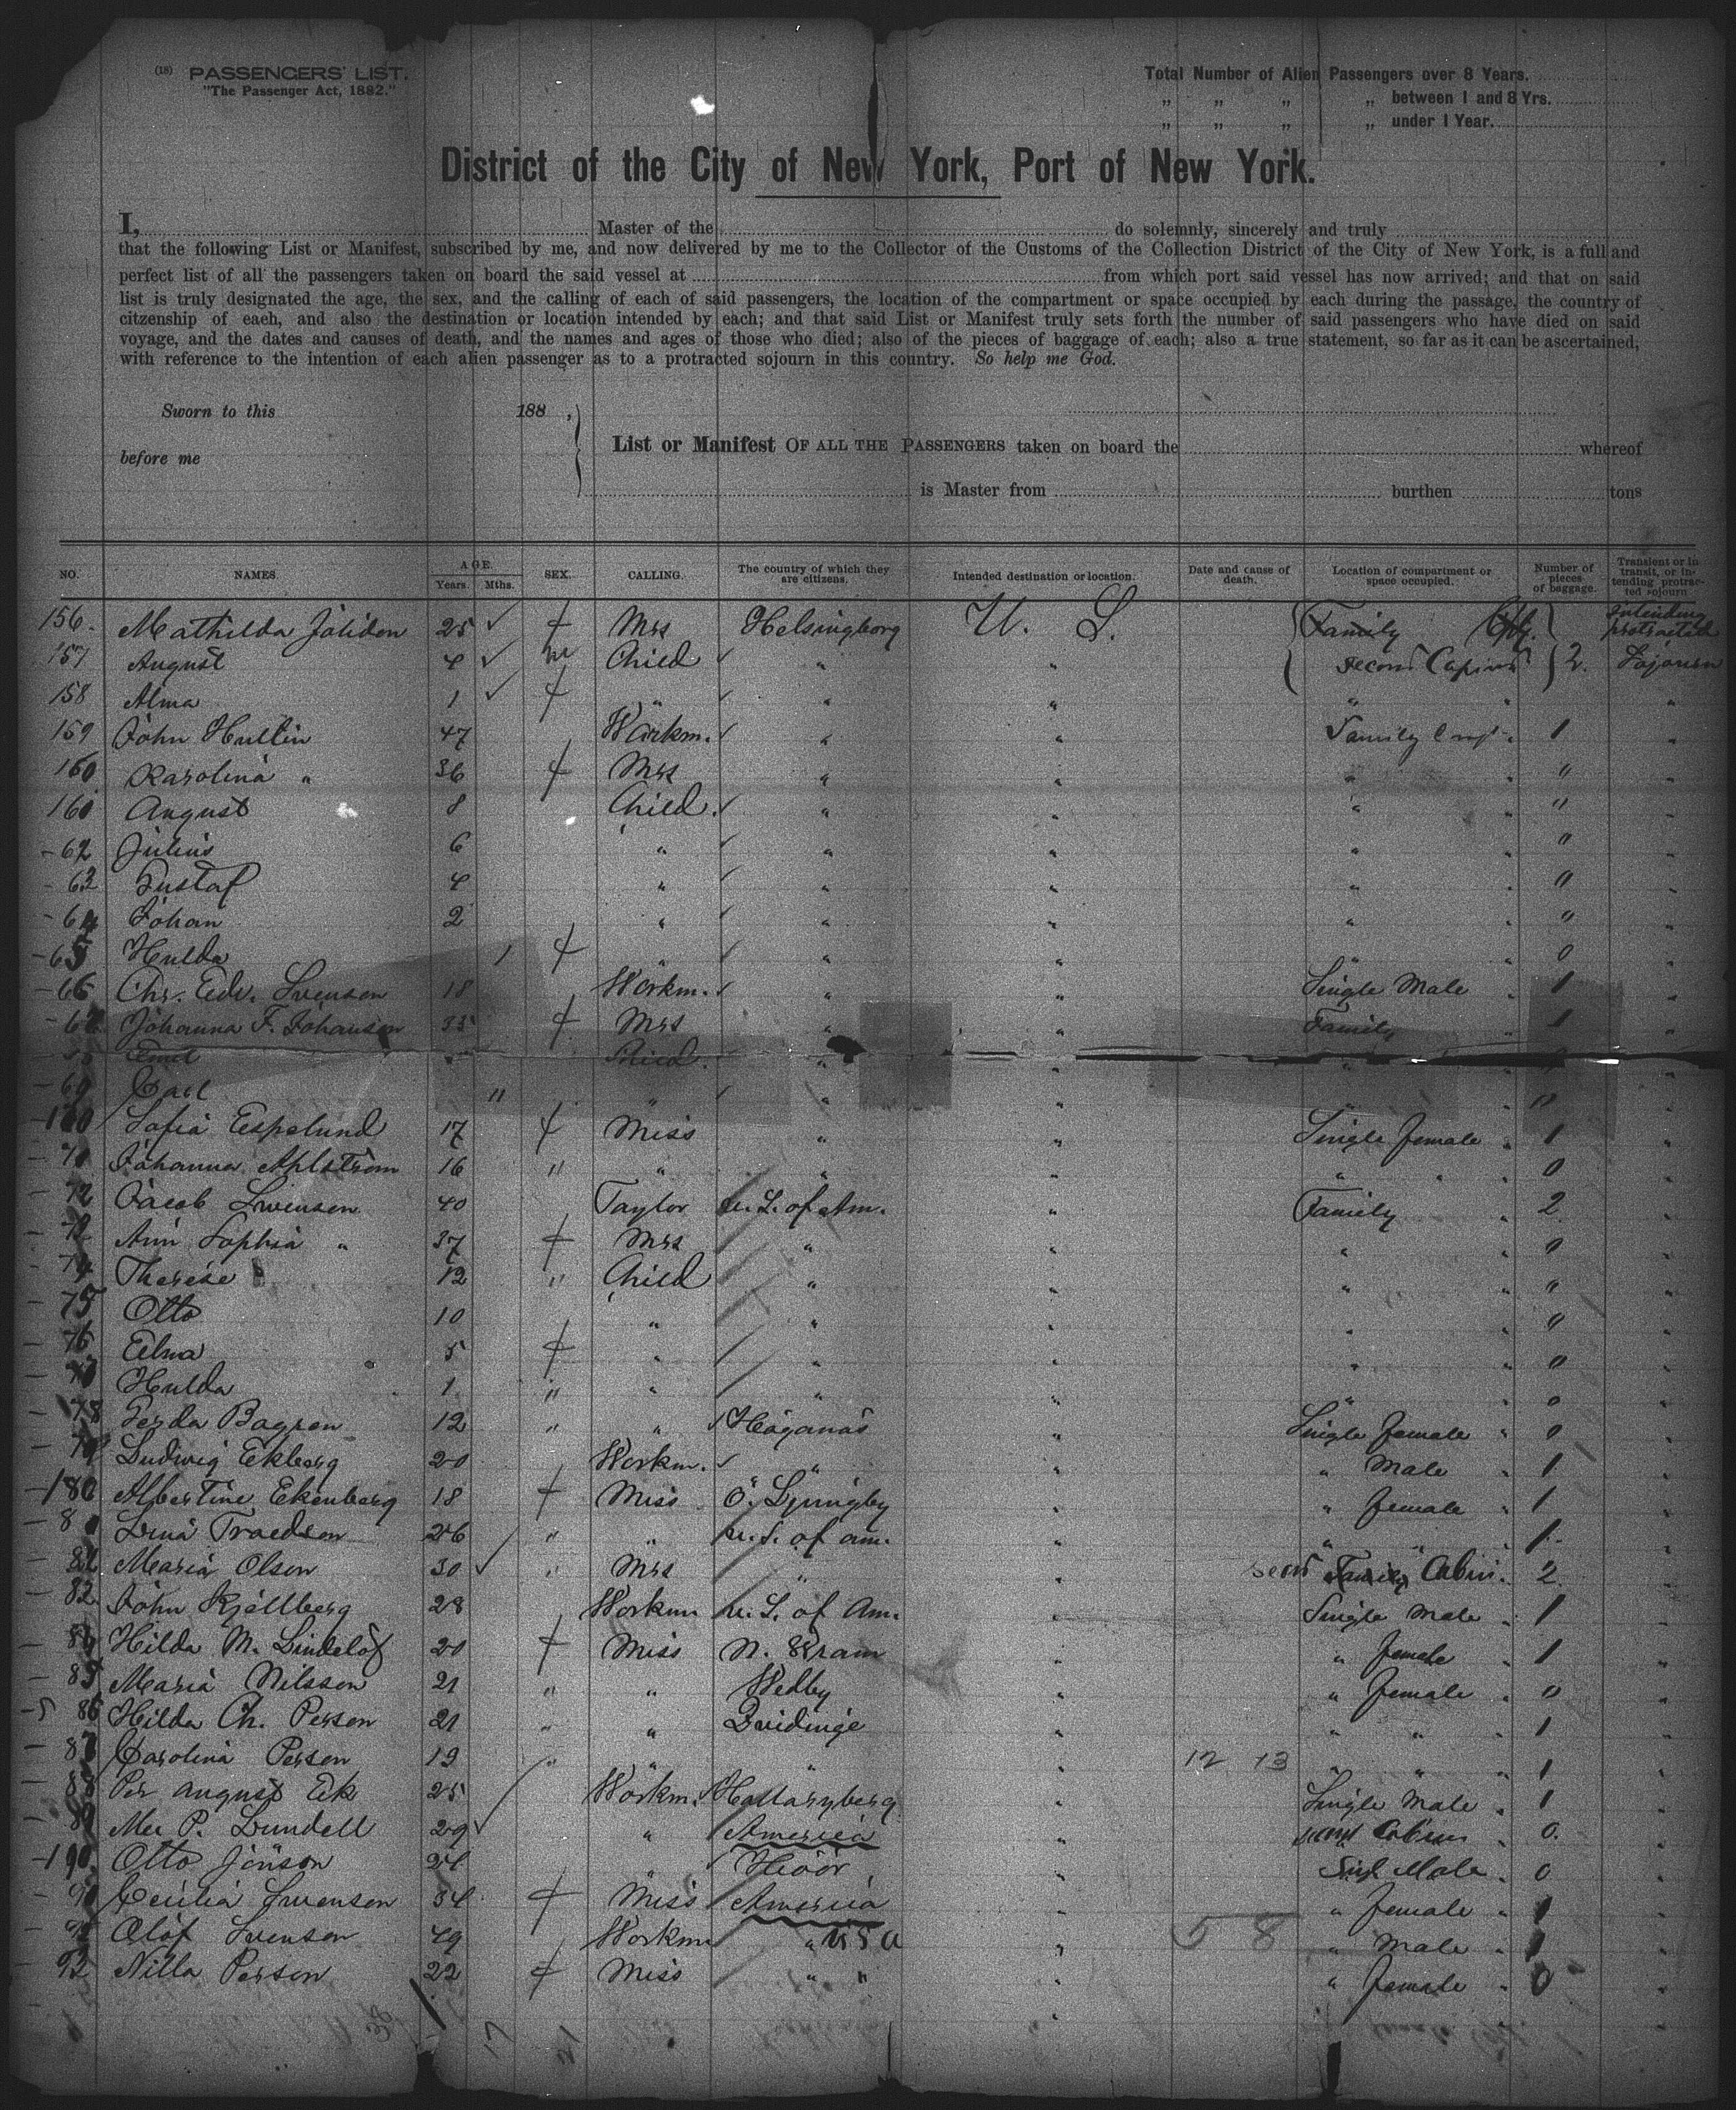 (18) PASSENGERS' LIST.
"The Passenger Act, 1882."
Total Number of Alien Passengers over 8 Years.
„ „ „ „ between 1 and 8 Yrs.
„ „ „ „ under 1 Year.
District of the City of New York, Port of New York.
I, Master of the do solemnly, sincerely and truly
that the following List or Manifest, subscribed by me, and now delivered by me to the Collector of the Customs of the Collection District of the City of New York, is a full and
perfect list of all the passengers taken on board the said vessel at from which port said vessel has now arrived; and that on said
list is truly designated the age, the sex, and the calling of each of said passengers, the location of the compartment or space occupied by each during the passage, the country of
citzenship of each, and also the destination or location intended by each; and that said List or Manifest truly sets forth the number of said passengers who have died on said
voyage, and the dates and causes of death, and the names and ages of those who died; also of the pieces of baggage of each; also a true statement, so far as it can be ascertained,
with reference to the intention of each alien passenger as to a protracted sojourn in this country. So help me God.
Sworn to this 188 ,
List or Manifest OF ALL THE PASSENGERS taken on board the whereof
before me
is Master from burthen tons
NO. NAMES. AGE. Years. Mths. SEX. CALLING. The country of which they are citizens. Intended destination or location. Date and cause of death. Location of compartment or space occupied. Number of pieces of baggage. Transient or in transit, or intending protracted sojourn
156. Mathilda 25 f Mrs Helsingborg U. S. Family Intending protracted
157 August 4 m Child " " Second 2. Sojourn
158 Alma 1 f " " " " "
159 John Hultin 47 Workm. " " Family 1 "
160 Karolina " 36 f Mrs " " " " "
161 August 8 Child. " " " " "
-62 Julius 6 " " " " " "
-63 Gustaf 4 " " " " " "
-64 Johan 2 " " " " " "
-65 Hulda 1 f " " " " 0 "
-66 Chr. Edv. Svenson 18 Workm. " " Single Male 1 "
-67 Johanna F. Johanson 35 f Mrs " " Family 1 "
Emil Child. " " "
-69 Carl 11 " " " " 0 "
Sofia Espelund 17 f Miss " " Single female 1 "
Johanna Ahlström 16 " " " " " " 0 "
-72 Jacob Swenson 40 Taylor U. S. of Am. " Family 2 "
Ann Sophia " 37 f Mrs " " " 0 "
-74 Therese 12 " Child " " " " "
-75 Otto 10 " " " " 0 "
-76 Elma 5 f " " " " 0 "
Hulda 1 " " " " " 0 "
-78 Gerda Bagren 12 " " Höganäs " Single female 0 "
-79 Ludwig Ekberg 20 Workm. " " " Male 1 "
-180 Albertine Ekenberg 18 f Miss Ö. Ljungby " " female 1 "
-81 Troedson 26 " " U. S. of Am. " " " 1 "
Maria Olson 30 " Mrs " " Cabin. 2 "
John Kjellberg 28 Workm U. S. of Am. " Single Male 1 "
Hilda M. Lindelöf 20 f Miss N. Wram " " female 1 "
-85 Maria Nilsson 21 " " Wedby " " female 0 "
86 Hilda Ch. Person 21 " " Qvidinge " " " 1 "
-87 Carolina Person 19 " " " " 12 13 " " 1 "
-88 Per August Ek 25 Workm. " Single Male 1 "
-89 P. Lundell 29 " America " Cabin 0. "
-190 Otto Jönson 24 " Höör " Male 0 "
Cecilia Swenson 34 f Miss America " " female 1 "
Olof Svenson 49 Workm " U S A " 5 8 " Male 1 "
Nilla Person 22 f Miss " " " " female 0 "
38 17 21